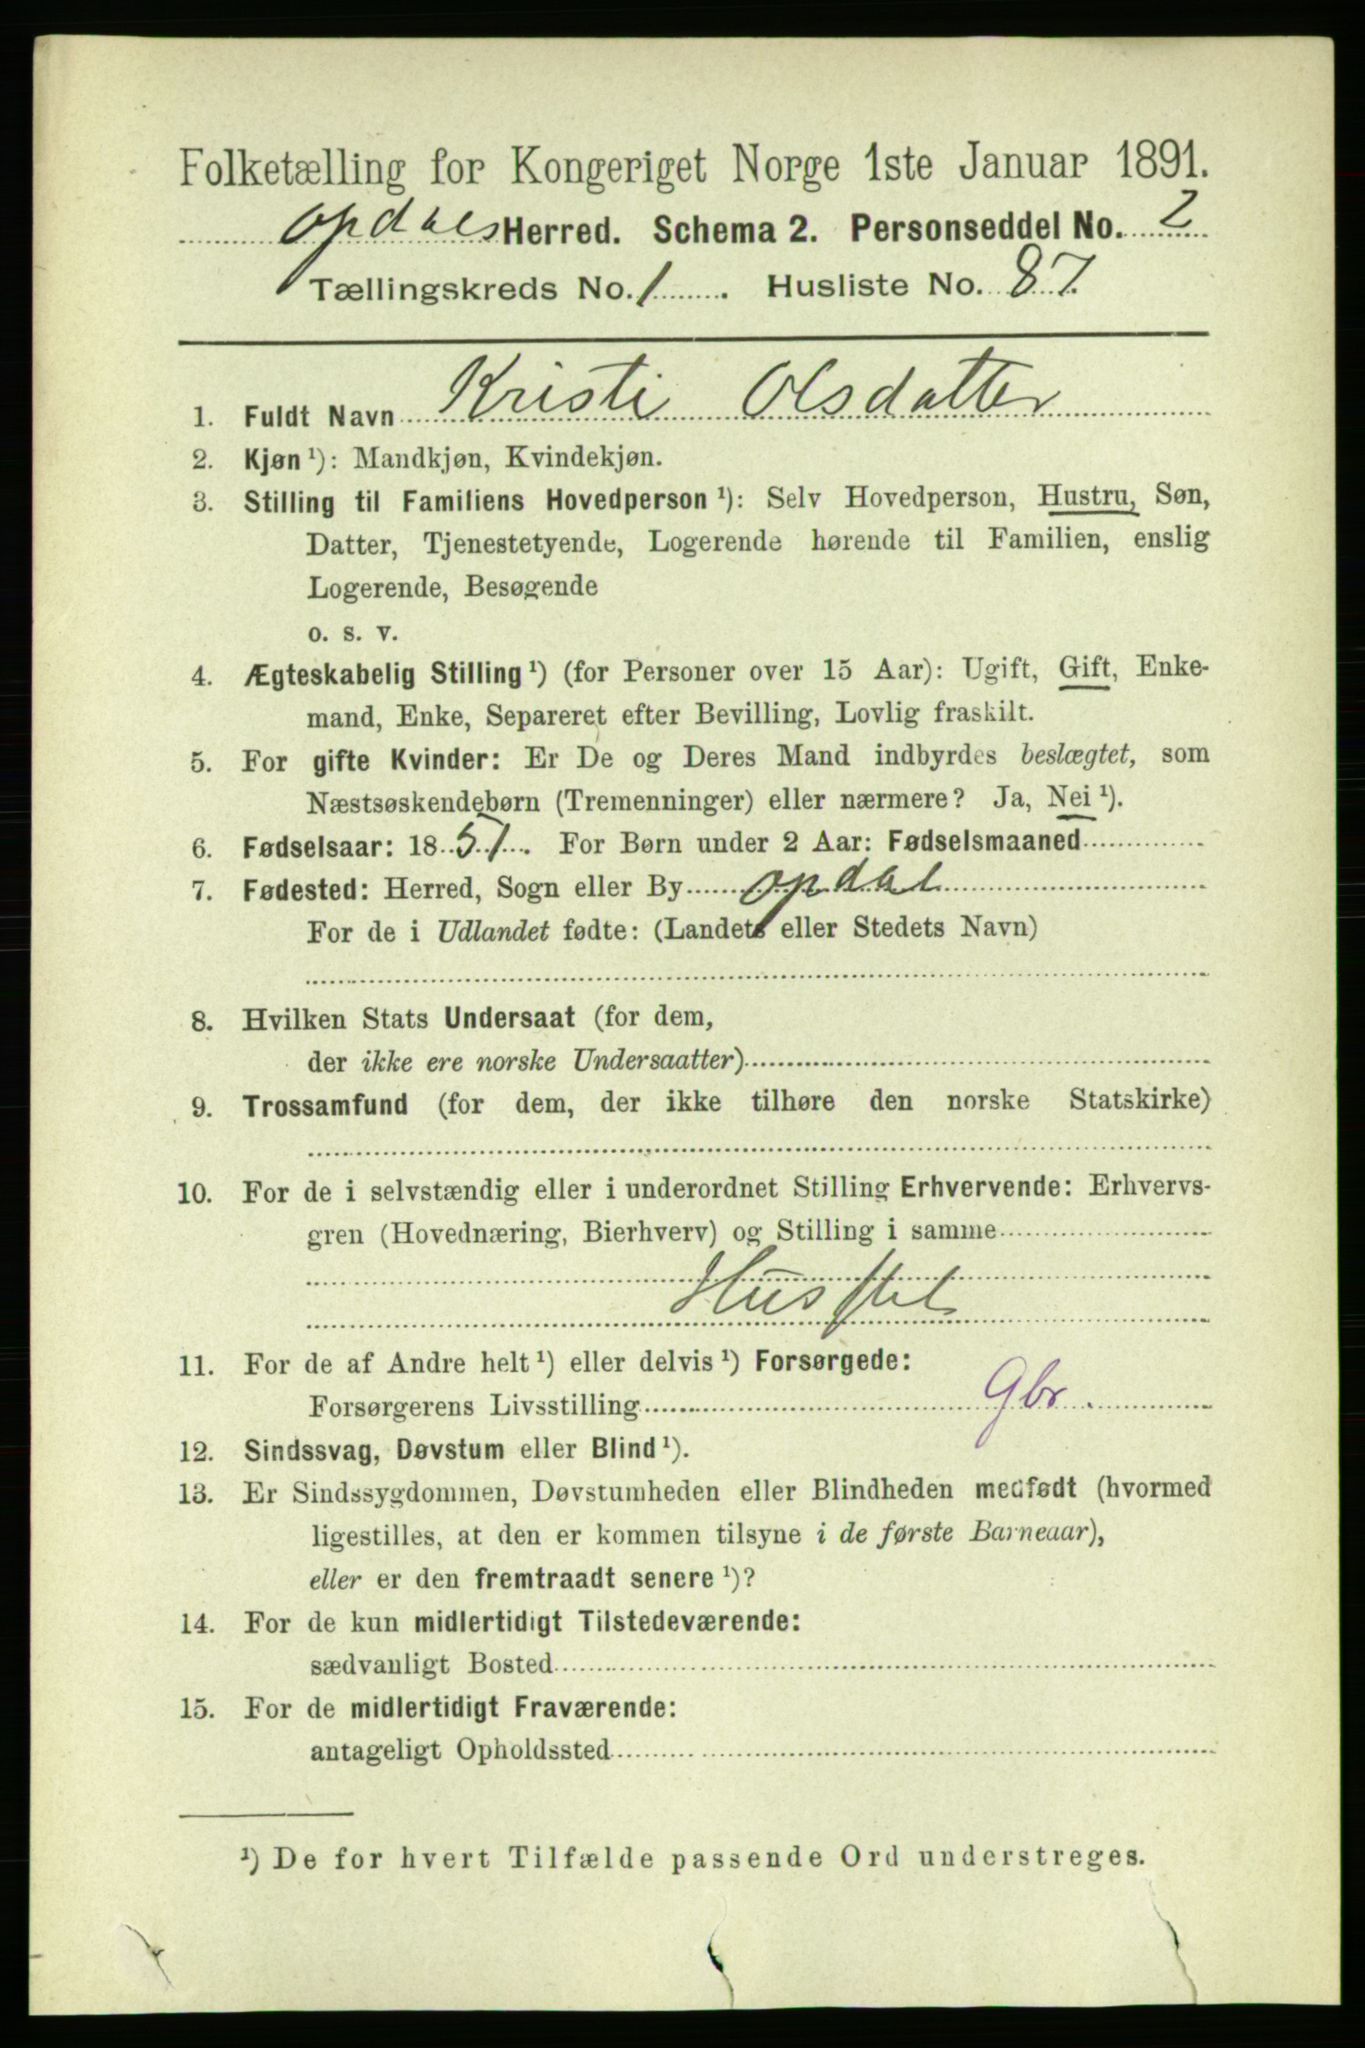 Folketælling for Kongeriget Norge 1ste Januar 1891.
Opdals Herred. Schema 2. Personseddel No. 2
Tællingskreds No. 1. Husliste No. 87.
1. Fuldt Navn Kristi Olsdatter
2. Kjøn ¹): Mandkjøn, Kvindekjøn.
3. Stilling til Familiens Hovedperson ¹): Selv Hovedperson, Hustru, Søn,
Datter, Tjenestetyende, Logerende hørende til Familien, enslig
Logerende, Besøgende
o. s. v.
4. Ægteskabelig Stilling ¹) (for Personer over 15 Aar): Ugift, Gift, Enke-
mand, Enke, Separeret efter Bevilling, Lovlig fraskilt.
5. For gifte Kvinder: Er De og Deres Mand indbyrdes beslægtet, som
Næstsøskendebørn (Tremenninger) eller nærmere? Ja, Nei ¹).
6. Fødselsaar: 1851. For Børn under 2 Aar: Fødselsmaaned
7. Fødested: Herred, Sogn eller By Opdal
For de i Udlandet fødte: (Landets eller Stedets Navn)
8. Hvilken Stats Undersaat (for dem,
der ikke ere norske Undersaatter)
9. Trossamfund (for dem, der ikke tilhøre den norske Statskirke)
10. For de i selvstændig eller i underordnet Stilling Erhvervende: Erhvervs-
gren (Hovednæring, Bierhverv) og Stilling i samme
Husstel
11. For de af Andre helt ¹) eller delvis ¹) Forsørgede:
Forsørgerens Livsstilling Gbr.
12. Sindssvag, Døvstum eller Blind ¹).
13. Er Sindssygdommen, Døvstumheden eller Blindheden medfødt (hvormed
ligestilles, at den er kommen tilsyne i de første Barneaar),
eller er den fremtraadt senere ¹)?
14. For de kun midlertidigt Tilstedeværende:
sædvanligt Bosted
15. For de midlertidigt Fraværende:
antageligt Opholdssted
¹) De for hvert Tilfælde passende Ord understreges.